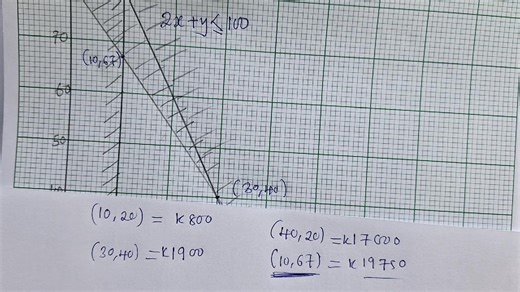 2x+y≤100
70
(10,67)
60
50
(30,40)
(10,20) = K800
(30,40) = K1900
(40,20) = K17000
(10,67) = K19750